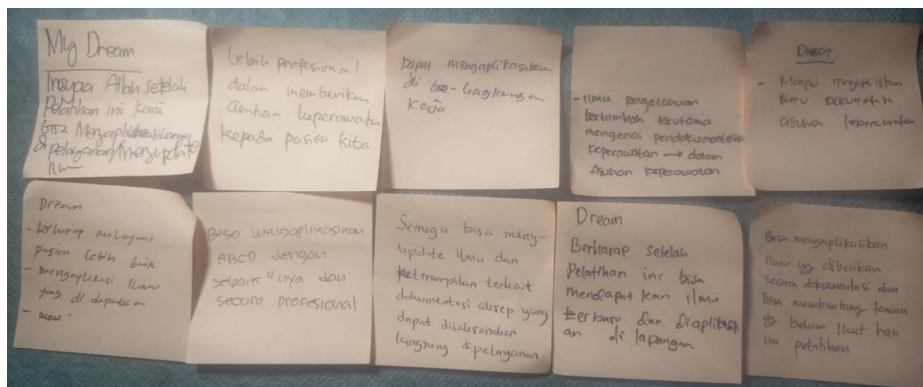 My Dream
Insyaa Allah setelah
Pelatihan ini kami
bisa
pelayanan/mengupdate
Ilmu
Lebih profesional
dalam memberikan
asuhan keperawatan
kepada pasien kita
Dapat mengaplikasikan
di lingkungan
kerja
- Ilmu Pengetahuan
bertambah terutama
mengenai pendokumentasian
keperawatan → dalam
Asuhan keperawatan
Dream
- Mampu
Ilmu Dokumentasi
asuhan keperawatan
Dream
- berharap melayani
pasien lebih baik
- mengaplikasi Ilmu
yang di dapatkan
Bisa mengaplikasikan
ABCD dengan
sebaik"nya dan
secara profesional
Semoga bisa meng-
update ilmu dan
keterampilan terkait
dokumentasi askep yang
dapat dilaksanakan
langsung dipelayanan.
Dream
Berharap Setelah
Pelatihan ini bisa
mendapatkan ilmu
terbaru dan diaplikasi
an di lapangan
Bisa mengaplikasikan
Ilmu yg diberikan
secara dokumentasi dan
bisa membimbing teman
yg belum ikut
ini pelatihan